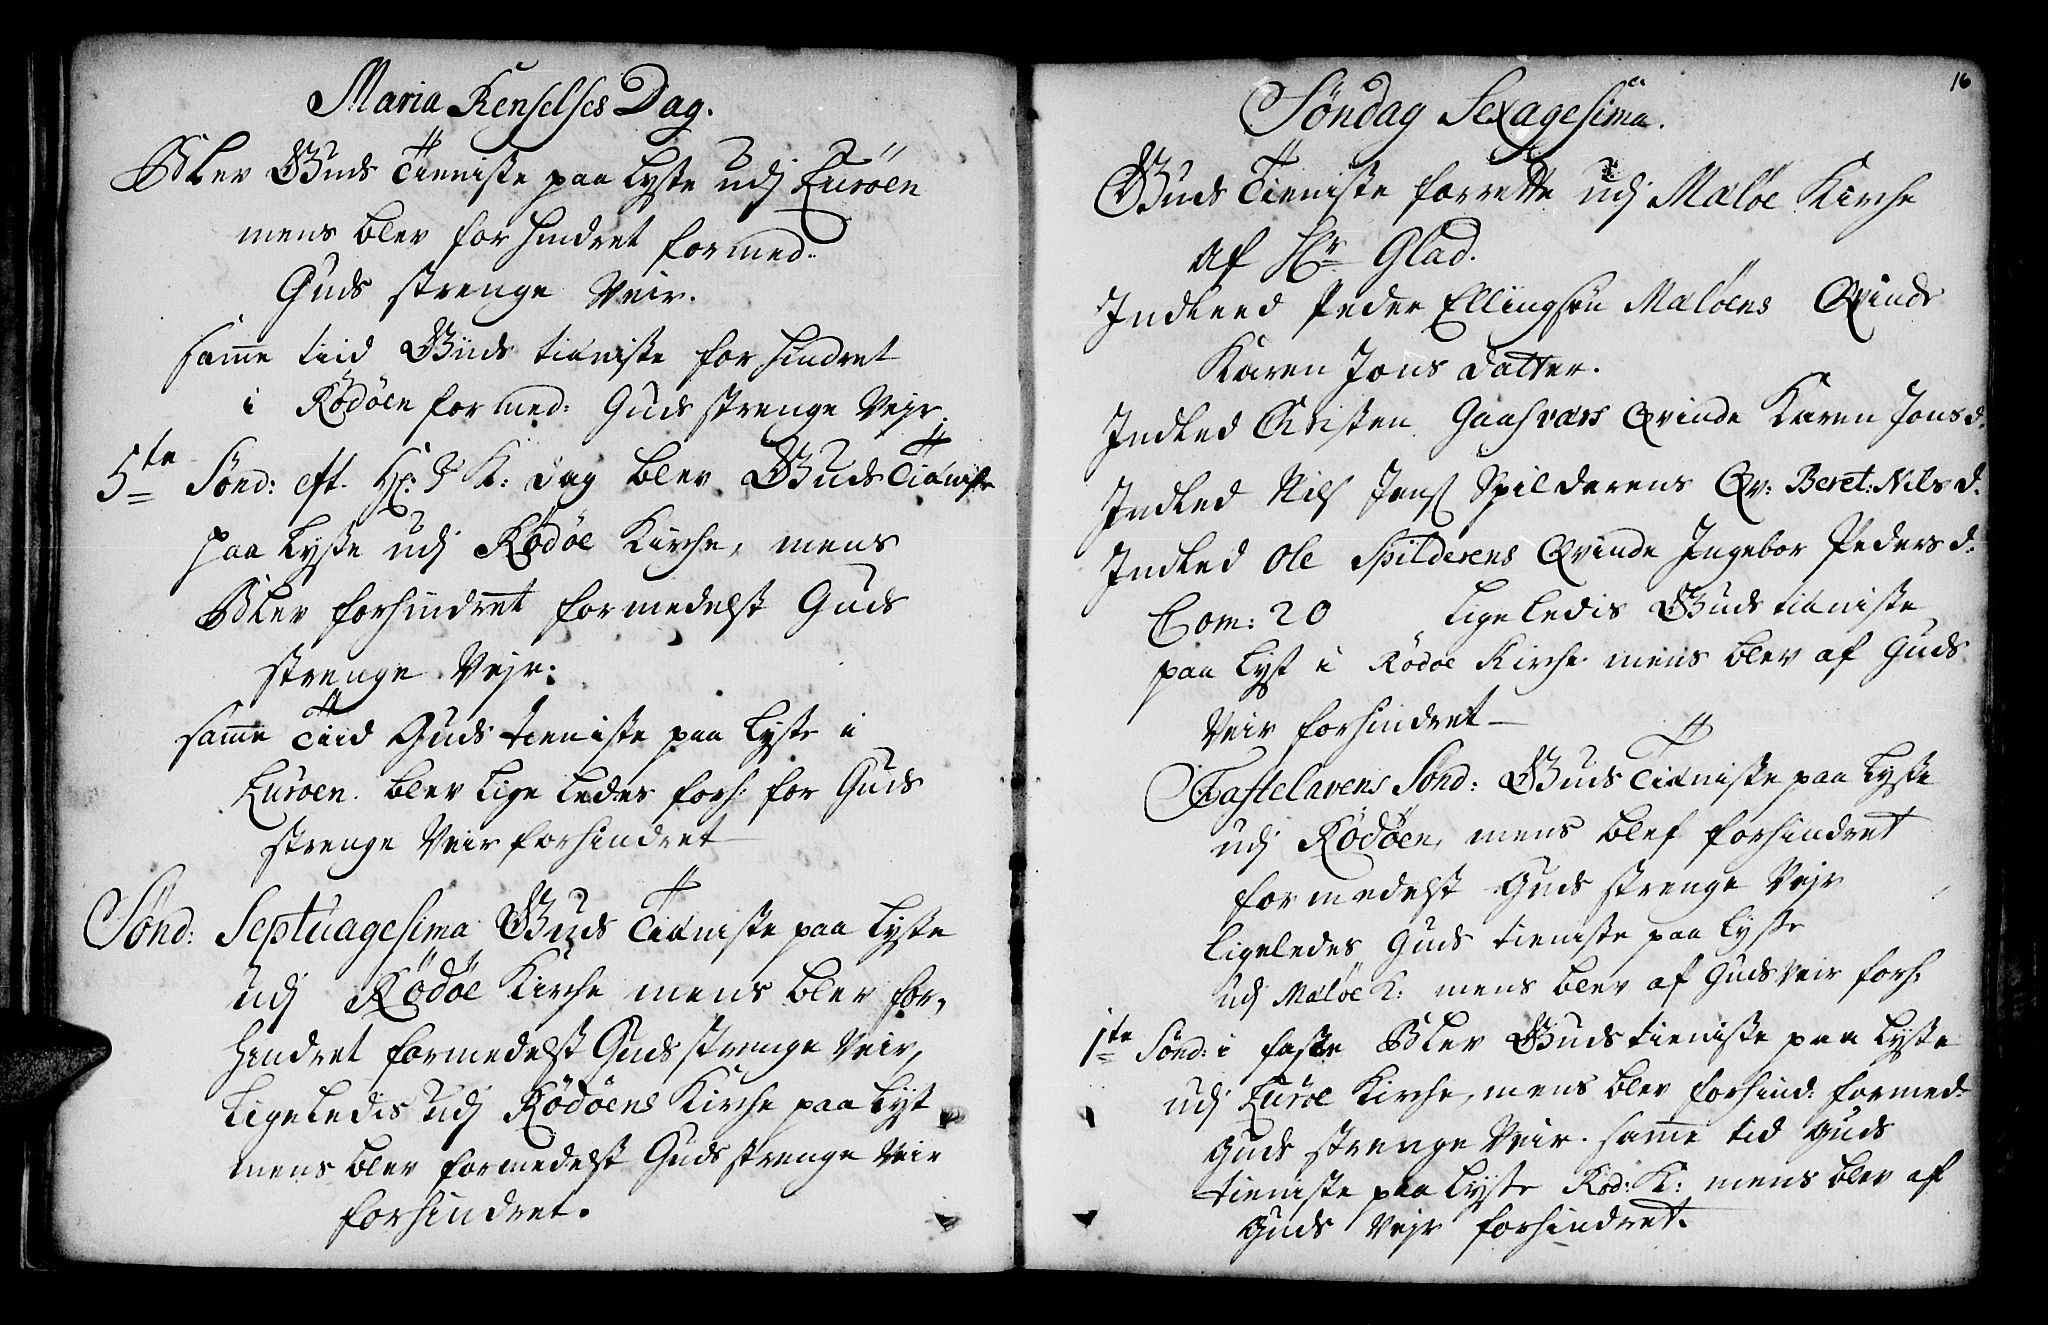 Maria Renselses Dag.
Blev Guds Tieniste paa lyste udj Lurøen
mens blev forhindret formed:
Guds strenge Veir.
samme tiid Guds tieniste forhindret
i Rødøen formed: Guds strenge Vejr.
5te Sønd: eft. H: 3 K: Dag blev Guds Tieniste
paa lyste udj Rødøe Kirche, mens
Blev forhindret formedelst Guds
strenge Vejr:
samme Tiid Guds tieniste paa lyste i
Lurøen. blev lige ledes forh: for Guds
strenge Veir forhindret
Sønd: Septuagesima Guds Tieniste paa lyste
udj Rødøe Kirche mens blev for,
hindret formedelst Guds strenge Veir,
Ligeledis udj Rødøens Kirche paa lyst
mens blev formedelst Guds strenge Veir
forhindret.
16
Søndag Sexagesima.
Guds Tieniste forrette udj Meløe Kirche
af Hr Glad.
Indleed Peder Ellingsøn Meløens Qvinde
Karen Jons datter.
Indled Christen Gaasvars Qvinde Karen Jonsd.
Indled Nils Jens Spilderens Qv: Beret: Nilsd.
Indled Ole Spilderens Qvinde Ingebor Pedersd:
Com: 20 Ligeledis Guds tieniste
paa lyst i Rødøe Kirche mens blev af Guds
Veir forhindret
Fastelavens Sønd: Guds Tieniste paa lyste
udj Rødøen, mens blef forhindret
formedelst Guds strenge Vejr
ligeledes Guds tieniste paa lyste
udj Meløe K: mens blev af Guds Veir forh:
1te Sønd: i faste Blev Guds tieniste paa lyste
udj Lurøe Kirche, mens blev forhind: formed:
Guds strenge Veir. samme tid Guds
tieniste paa lyste Rød: K: mens blev af
Guds Vejr forhindret.